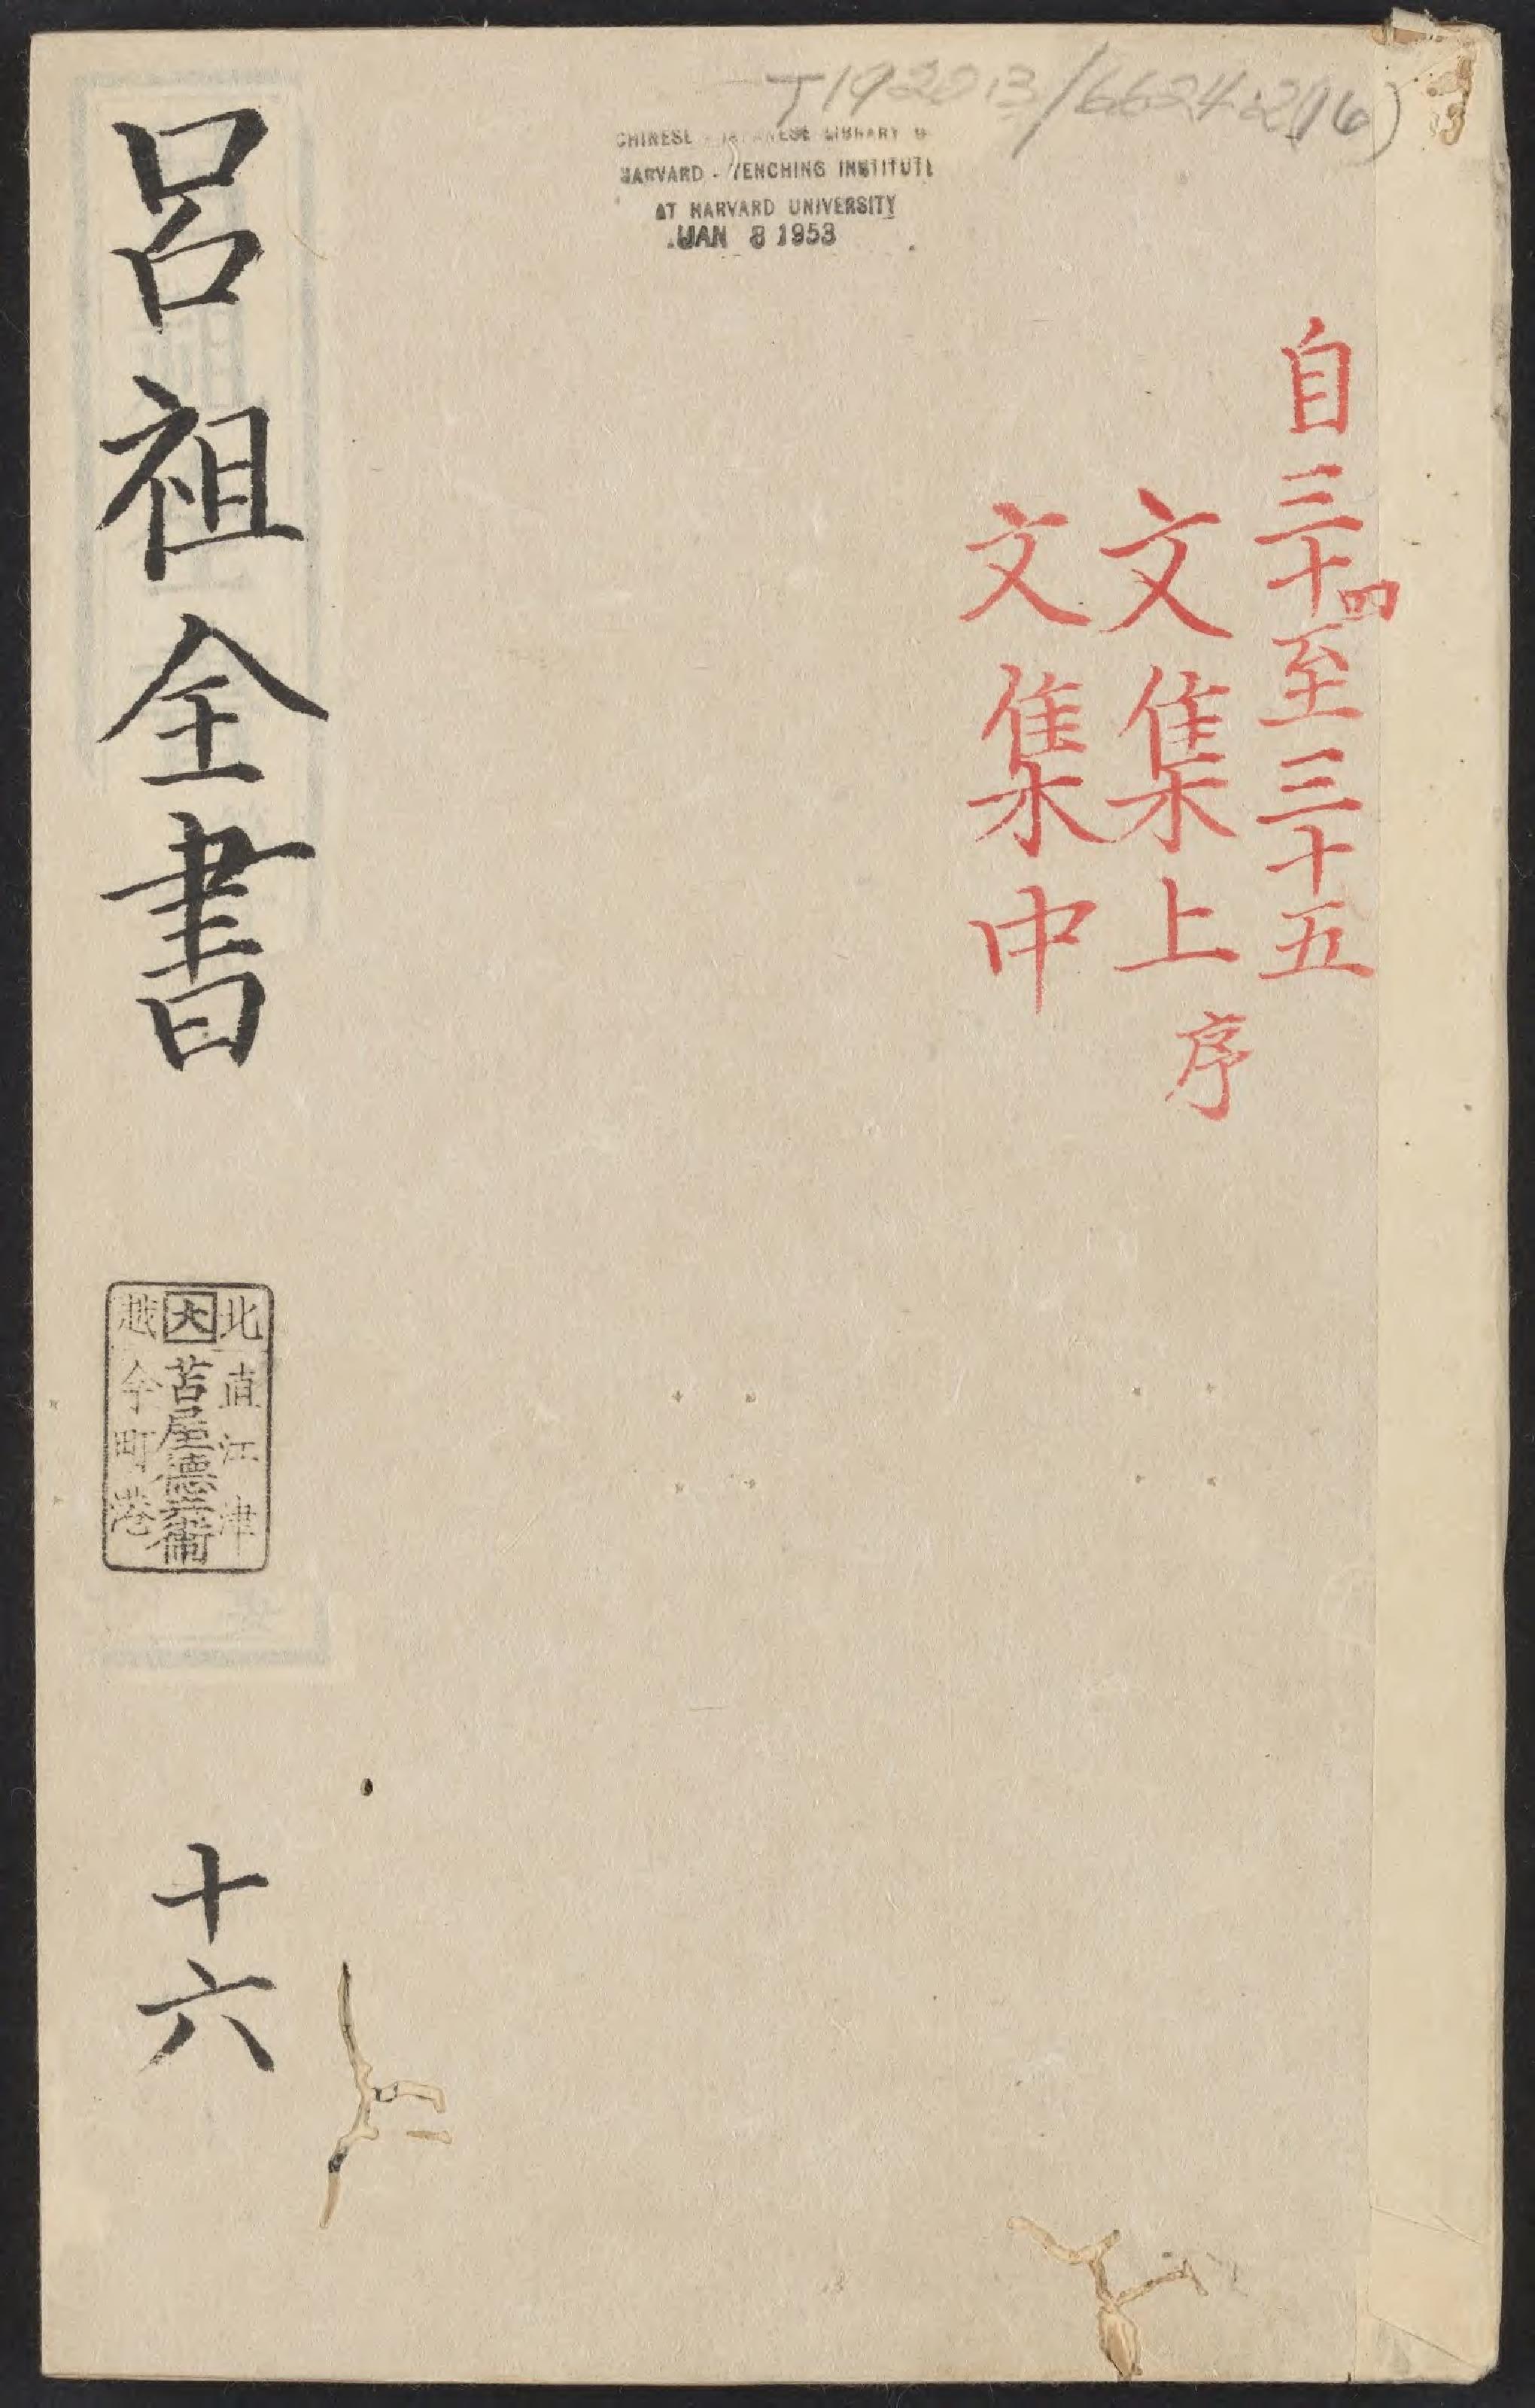 T1920.13/6624.2(16)
CHINESE - JAPANESE LIBRARY
HARVARD - YENCHING INSTITUTE
AT HARVARD UNIVERSITY
JAN 8 1953
自三十四至三十五
文集上序
文集中
呂祖全書
北直江津
大苫屋德兵衞
越今町港
十六